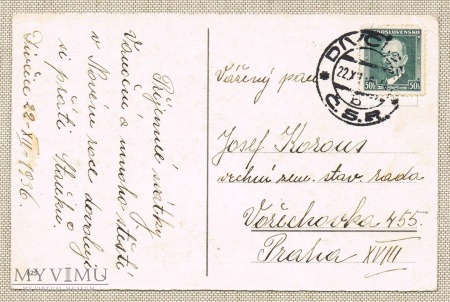 Příjemné svátky
Vánoční a mnoho štěstí
v Novém roce dovolují
si přáti
22-XII-1936.
ČESKOSLOVENSKO
50h 50h
Č.S.R.
Vážený pan
Josef Korous
vrchní zem. stav. rada
Vořechovka 455.
Praha XVIII
MYVIMU